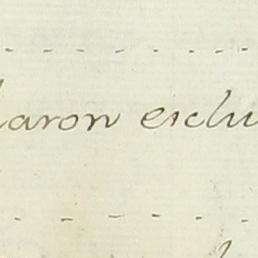 laron exclu